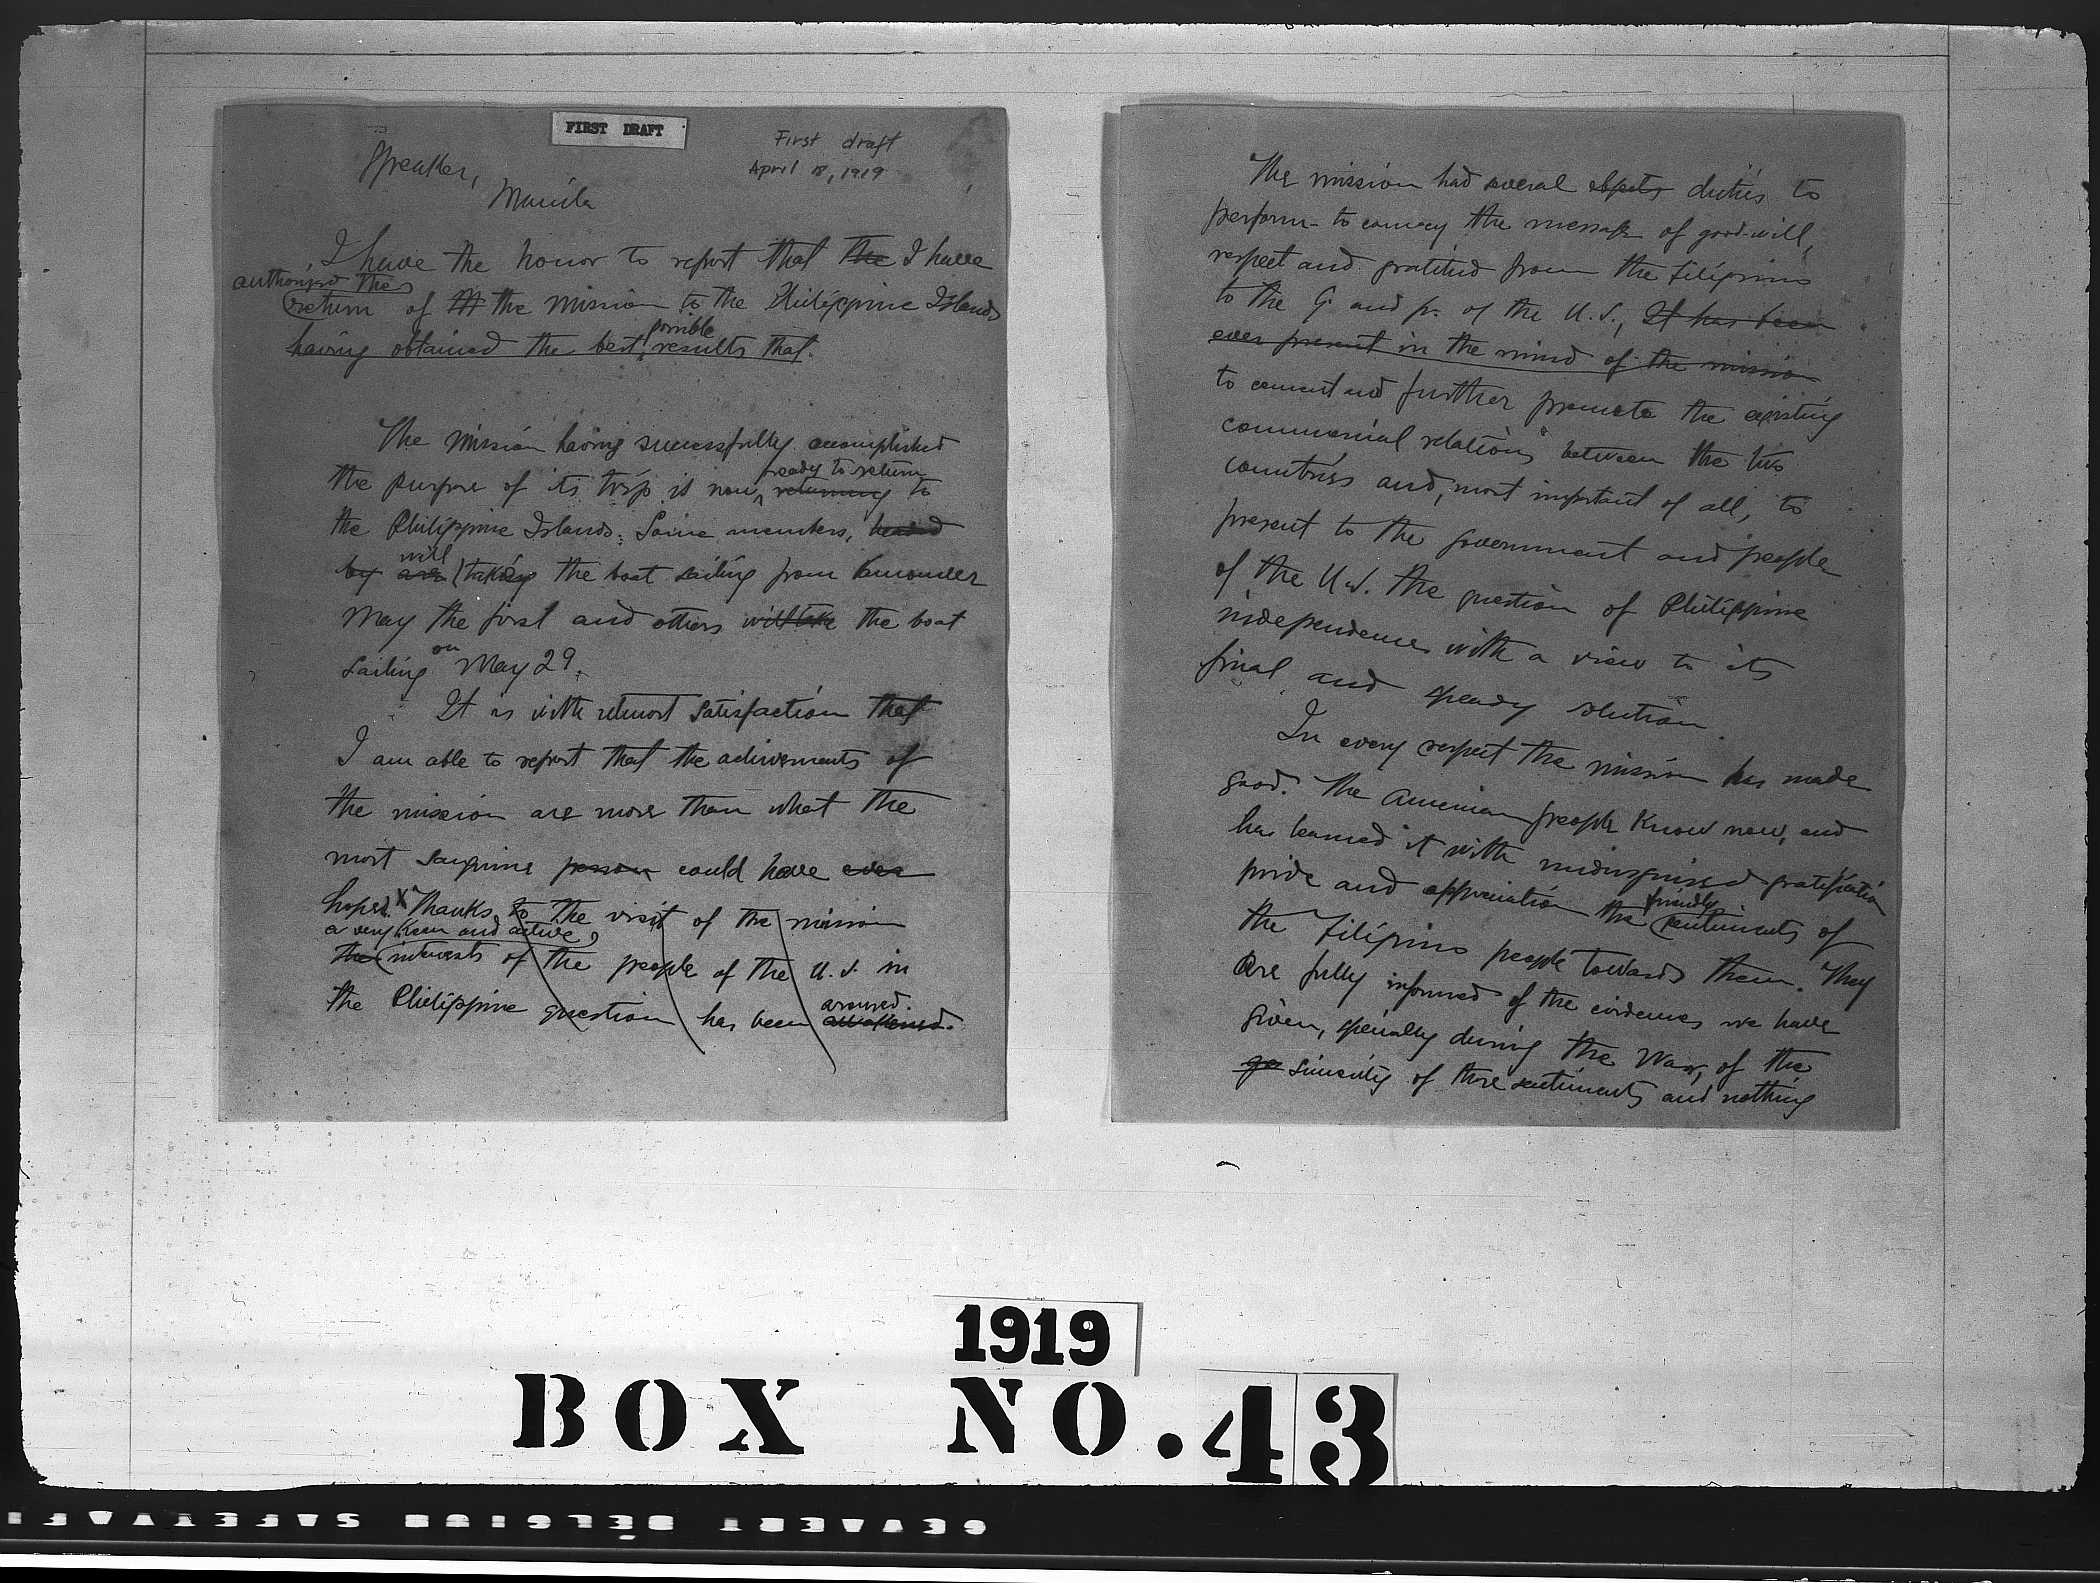 FIRST DRAFT
First draft
April 18, 1919
Speaker,
Manila
I have the honor to report that the I have
authorized the
return of the mission to the Philippine Islands
possible
having obtained the best results that.
The mission having successfully accomplished
ready to return
the purpose of its trip is now returning to
the Philippine Islands. Some members, headed
will
by are taking the boat sailing from Vancouver
May the first and others will take the boat
on
sailing May 29.
It is with utmost satisfaction that
I am able to report that the achivements of
the mission are more than what the
most sanguine person could have ever
hoped. X Thanks to the visit of the mission
a very keen and active
the interests of the people of the U.S. in
aroused.
the Philippine question has been awakened.
The mission had several objects duties to
perform - to convey the message of good-will,
respect and gratitud from the Filipinos
to the G. and p. of the U.S., It has been
ever present in the mind of the mission
to cement and further promote the existing
commercial relations between the two
countries and, most important of all, to
present to the government and people
of the U.S. the question of Philippine
independence with a view to its
final and speady solution.
In every respect the mission has made
good. The American people know now, and
has learned it with undisguised gratification
friendly
pride and appreciation the sentiments of
the Filipino people towards them. They
are fully informed of the evidences we have
given, specially during the War, of the
sincerity of those sentiments and nothing
1919
BOX NO. 43
GEVAERT BELGIUM SAFETY